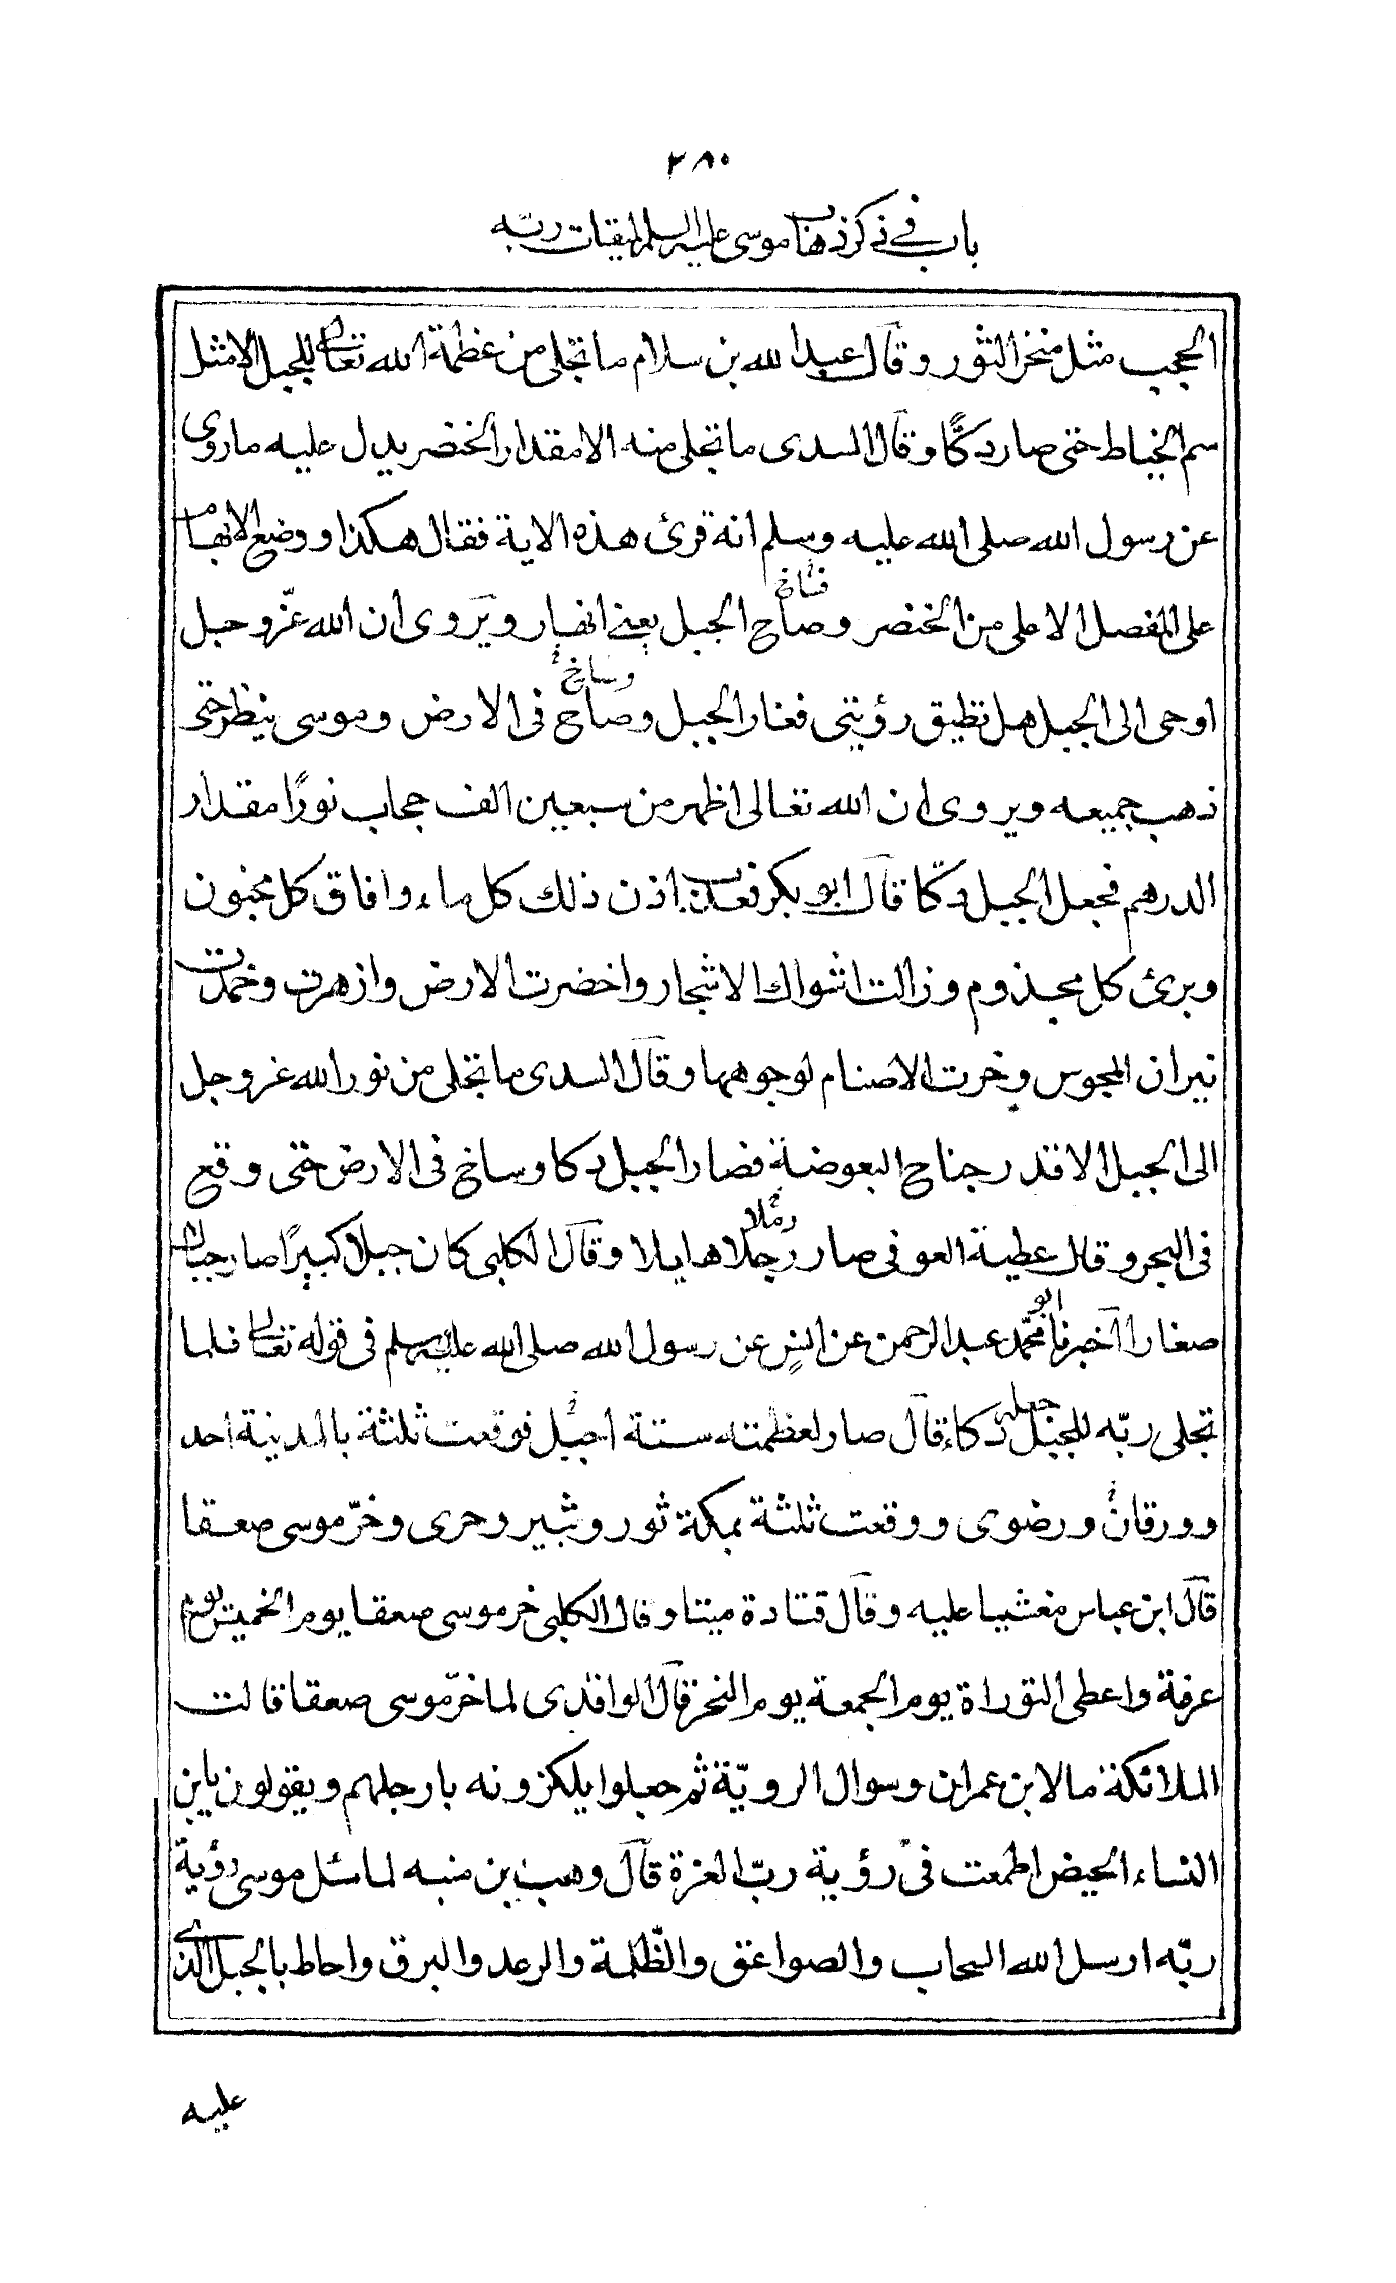 ٢٨٠
باب في ذكر ذهاب موسى عليه السلم لميقات ربّه
الحجب مثل منخر الثور وقال عبد الله بن سلام ما تجلى من عظمة الله تعالى للجبل الا مثل
سم الخياط حتى صار دكًّا وقال السدى ما تجلى منه الا مقدار الخنصر يدل عليه ما روى
عن رسول الله صلى الله عليه وسلم انه قرئ هذه الاية فقال هكذا ووضع الابهام
على المفصل الاعلى من الخنصر وصاح الجبل يعني انهار ويروى ان الله عزّ وجل
فساخ
اوحى الى الجبل هل تطيق رؤيتى فغار الجبل وصاخ فى الارض وموسى ينظر حتى
وساخ
ذهب جميعه ويروى ان الله تعالى اظهر من سبعين الف حجاب نورًا مقدار
الدرهم فجعل الجبل دكّا قال ابو بكر فعذب اذن ذلك كل ماء وافاق كل مجنون
وبرئ كل مجذوم وزالت اشواك الاشجار واخضرت الارض وازهرت وخمدت
نيران المجوس وخرت الاصنام لوجوهها وقال السدى ما تجلى من نور الله عز وجل
الى الجبل الا قدر جناح البعوضة فصار الجبل دكا وساخ فى الارض حتى وقع
فى البحر وقال عطية العوفى صار رجلا هايلا وقال الكلبى كان جبلا كبيرًا صار جبالا
رملا
صغارا اخبرنا محمّد عبد الرحمن عن انسٍ عن رسول الله صلى الله عليه وسلم فى قوله تعالى فلما
ابو
تجلى ربّه للجبل دكاء قال صار لعظمته ستة اجبل فوقعت ثلثة بالمدينة احد
جعله
وورقان ورضوى ووقعت ثلثة بمكة ثور وثبير وحرى وخرّ موسى صعقا
قال ابن عباس مغشيا عليه وقال قتادة ميتا وقال الكلبى خر موسى صعقا يوم الخميس يوم
عرفة واعطى التوراة يوم الجمعة يوم النحر قال الواقدى لما خرّ موسى صعقا قالت
الملائكة ما لابن عمران وسوال الرويّة ثم جعلوا يلكزونه بارجلهم ويقولون يابن
النساء الحيض اطمعت فى رؤية ربّ العزة قال وهب بن منبه لما سئل موسى رؤية
ربّه ارسل الله السحاب والصواعق والظّلمة والرعد والبرق واحاط بالجبل الذى
عليه